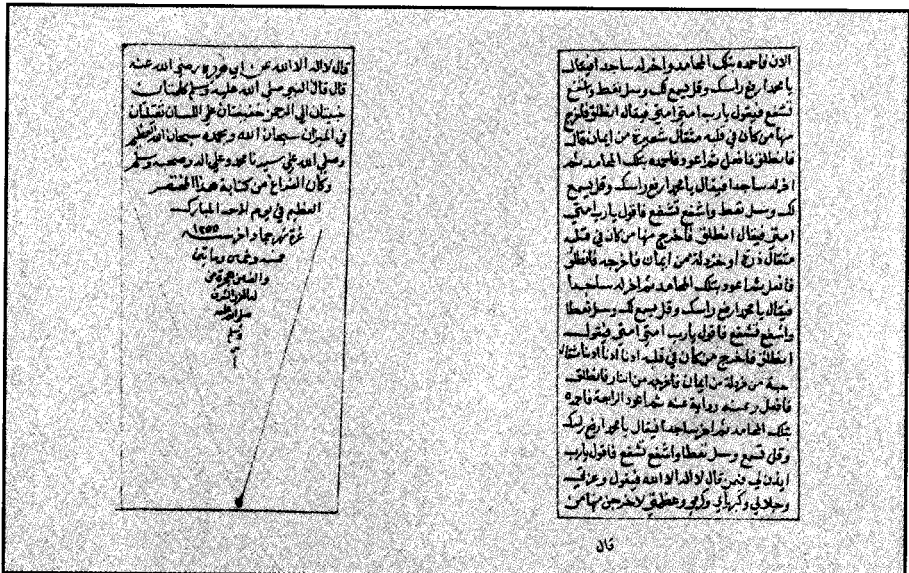 الان فاحمده بتلك المحامد واخر له ساجدا فيقال
يا محمد ارفع راسك وقل يسمع لك وسل تعط واشفع
تشفع فيقول يا رب امتي امتي فيقال انطلق فاخرج
منها من كان في قلبه مثقال شعيرة من ايمان قال
فانطلق فافعل ثم اعود فاحمده بتلك المحامد ثم
اخر له ساجدا فيقال يا محمد ارفع راسك وقل يسمع
لك وسل تعط واشفع تشفع فاقول يا رب امتي
امتي فيقال انطلق فاخرج منها من كان في قلبه
مثقال ذرة او خردلة من ايمان فاخرجه فانطلق
فافعل ثم اعود بتلك المحامد ثم اخر له ساجدا
فيقال يا محمد ارفع راسك وقل يسمع لك وسل تعطا
واشفع تشفع فاقول يا رب امتي امتي فيقول
انطلق فاخرج من كان في قلبه ادنا ادنا ادنا مثقال
حبة من خردلة من ايمان فاخرجه من النار فانطلق
فافعل وعنه رواية عنه ثم اعود الرابعة فاحمده
بتلك المحامد ثم اخر ساجدا فيقال يا محمد ارفع راسك
وقل تسمع وسل تعطا واشفع تشفع فاقول يا رب
ايذن لي فمن قال لا اله الا الله فيقول وعزتي
وجلالي وكبريائي وعظمتي لاخرجن منها من
قال
قال لا اله الا الله عن ابي هريرة رضي الله عنه
قال قال النبي صلى الله عليه وسلم كلمتان
حبيبتان الى الرحمن خفيفتان على اللسان ثقيلتان
في الميزان سبحان الله وبحمده سبحان الله العظيم
وصلى الله على سيدنا محمد وعلى اله وصحبه وسلم
وكان الفراغ من كتابة هذا المختصر
العظيم في يوم الاحد المبارك
غرة شهر جماد اخر ١٢٥٥
خمسه وخمسين وماتين
والف من هجرة من
له العز والشرف
صلى الله عليه
وسلم